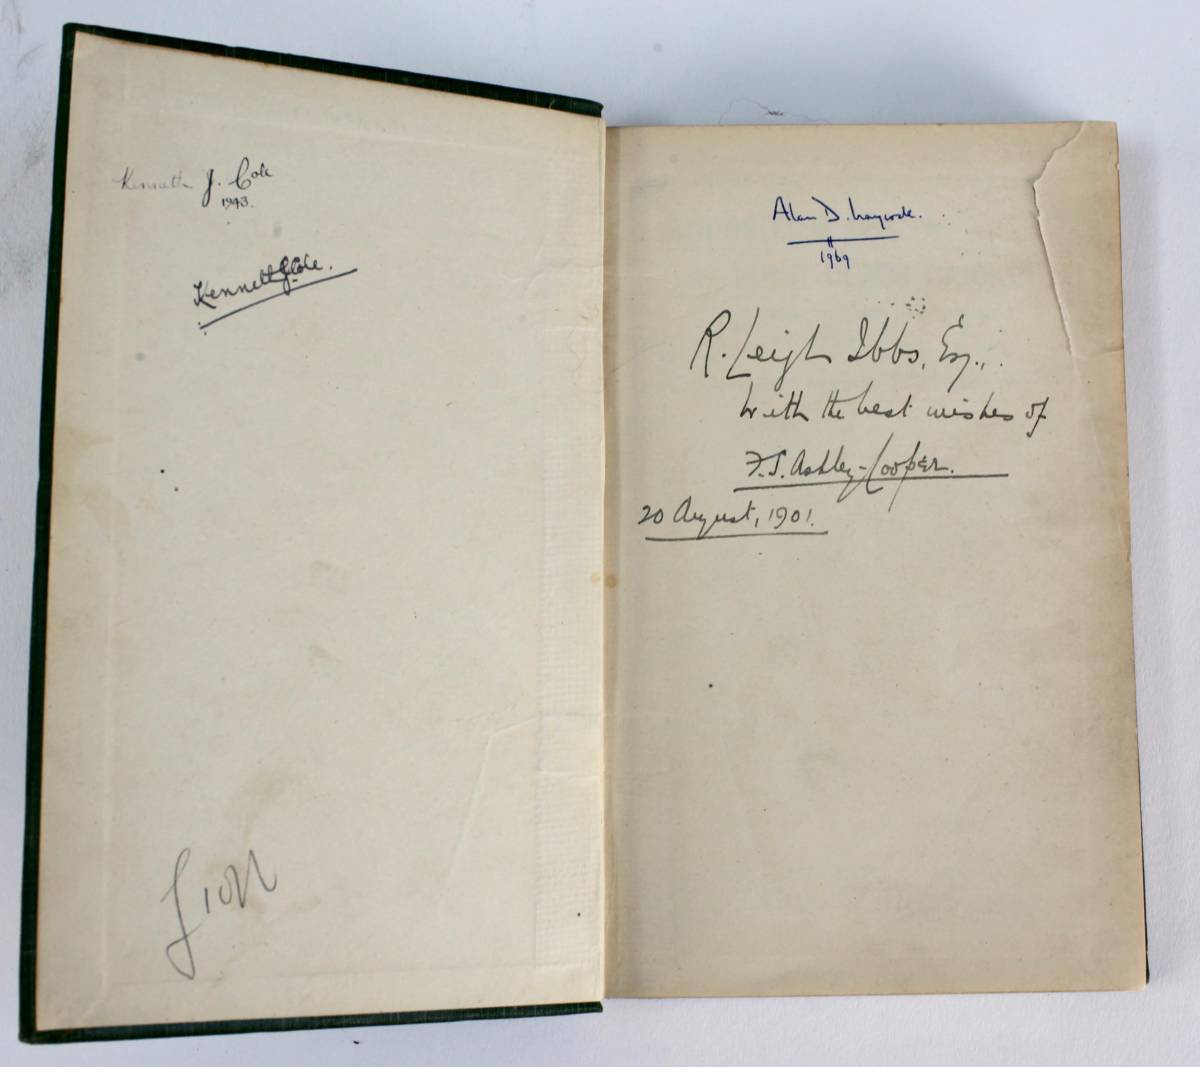 Kenneth J. Cole
1943.
Kenneth J. Cole.
Alan D.
1969
R. Leigh Ibbs, Esq.,
With the best wishes of
F. S. Ashley-Cooper.
20 August, 1901.